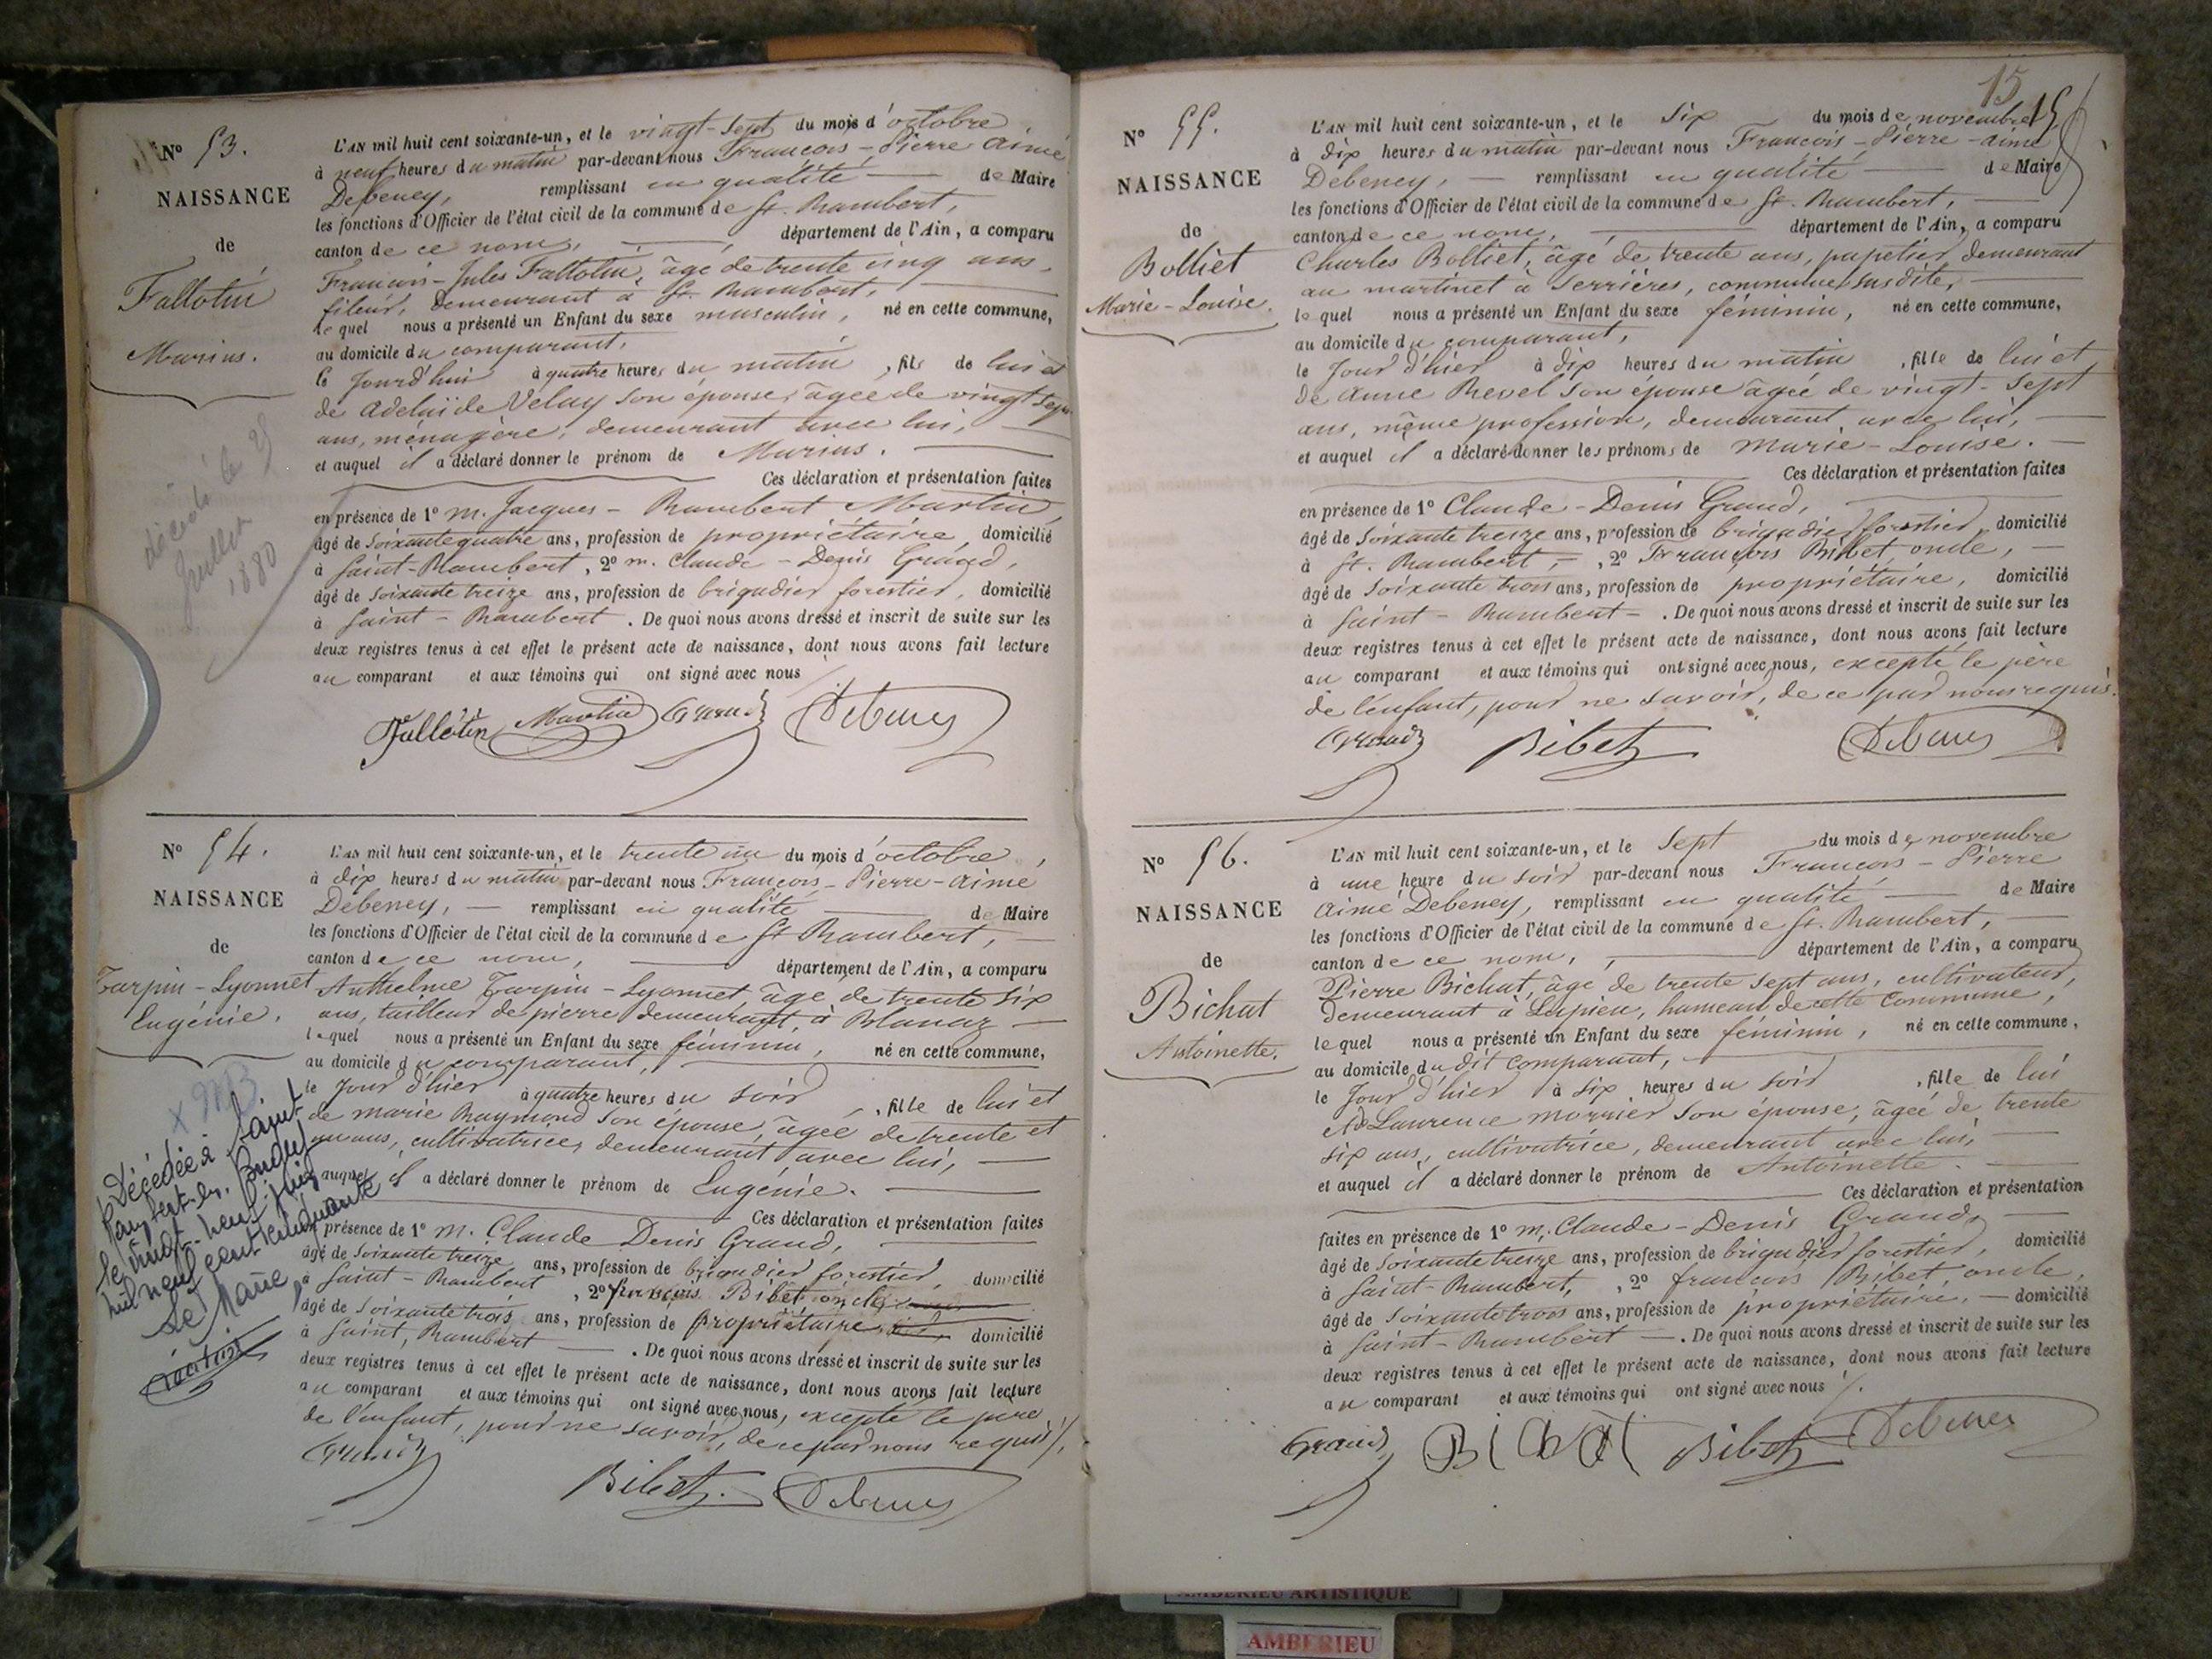 N° 53.
NAISSANCE
de
Fallotin
Marius.
décédé le 25
Juillet
1880
L'AN mil huit cent soixante-un, et le vingt-sept du mois d'octobre
à neuf heures du matin par-devant nous François-Pierre Aimé
Debeney, remplissant en qualité de Maire
les fonctions d'Officier de l'état civil de la commune de St. Rambert,
canton de ce nom, département de l'Ain, a comparu
François-Jules Fallotin, âgé de trente cinq ans,
fileur, demeurant à St. Rambert,
lequel nous a présenté un Enfant du sexe masculin, né en cette commune,
au domicile du comparant,
le jourd'hui à quatre heures du matin, fils de lui et
de Adelaïde Velay son épouse, âgée de vingt sept
ans, ménagère, demeurant avec lui,
et auquel il a déclaré donner le prénom de Marius.
Ces déclaration et présentation faites
en présence de 1° M. Jacques-Rambert Martin,
âgé de soixante quatre ans, profession de propriétaire, domicilié
à Saint-Rambert, 2° m. Claude-Denis Grand,
âgé de soixante treize ans, profession de brigadier forestier, domicilié
à Saint-Rambert. De quoi nous avons dressé et inscrit de suite sur les
deux registres tenus à cet effet le présent acte de naissance, dont nous avons fait lecture
au comparant et aux témoins qui ont signé avec nous
Fallotin Martin Grand Debeney
N° 54.
NAISSANCE
de
Turpin-Lyonnet
Eugénie.
Décédée à Saint-
Rambert-en-Bugey
le vingt-neuf juin
mil neuf cent cinquante
Le Maire
L'AN mil huit cent soixante-un, et le trente un du mois d'octobre,
à dix heures du matin par-devant nous François-Pierre-Aimé
Debeney, remplissant en qualité de Maire
les fonctions d'Officier de l'état civil de la commune de St Rambert,
canton de ce nom, département de l'Ain, a comparu
Anthelme Turpin-Lyonnet, âgé de trente six
ans, tailleur de pierre demeurant, à Blanaz
lequel nous a présenté un Enfant du sexe féminin, né en cette commune,
au domicile du comparant,
le jour d'hier à quatre heures du soir, fille de lui et
de marie Raymond son épouse, âgée de trente et
un ans, cultivatrice, demeurant avec lui,
auquel il a déclaré donner le prénom de Eugénie.
Ces déclaration et présentation faites
présence de 1° M. Claude Denis Grand,
âgé de soixante treize ans, profession de brigadier forestier, domicilié
à Saint-Rambert, 2° françois Bibet oncle
âgé de soixante trois ans, profession de propriétaire domicilié
à Saint, Rambert. De quoi nous avons dressé et inscrit de suite sur les
deux registres tenus à cet effet le présent acte de naissance, dont nous avons fait lecture
au comparant et aux témoins qui ont signé avec nous, excepté le père
de l'enfant, pour ne savoir, de ce par nous requis
Grand Bibet. Debeney
15
N° 55.
NAISSANCE
de
Bolliet
Marie-Louise.
L'AN mil huit cent soixante-un, et le six du mois de novembre
à dix heures du matin par-devant nous François-Pierre-aimé
Debeney, remplissant en qualité de Maire
les fonctions d'Officier de l'état civil de la commune de St. Rambert,
canton de ce nom, département de l'Ain, a comparu
Charles Bolliet, âgé de trente ans, papetier, demeurant
au martinet à Serrières, commune susdite,
lequel nous a présenté un Enfant du sexe féminin, né en cette commune,
au domicile du comparant,
le jour d'hier à dix heures du matin, fille de lui et
de anne Revel son épouse âgée de vingt-sept
ans, même profession, demeurant avec lui,
et auquel il a déclaré donner les prénoms de marie-Louise.
Ces déclaration et présentation faites
en présence de 1° Claude-Denis Grand,
âgé de soixante treize ans, profession de brigadier forestier, domicilié
à St. Rambert, 2° François Bibet, oncle,
âgé de soixante trois ans, profession de propriétaire, domicilié
à Saint-Rambert. De quoi nous avons dressé et inscrit de suite sur les
deux registres tenus à cet effet le présent acte de naissance, dont nous avons fait lecture
au comparant et aux témoins qui ont signé avec nous, excepté le père
de l'enfant, pour ne savoir, de ce par nous requis.
Grand Bibet Debeney
N° 56.
NAISSANCE
de
Bichat
Antoinette.
L'AN mil huit cent soixante-un, et le sept du mois de novembre
à une heure du soir par-devant nous François-Pierre
Aimé Debeney, remplissant en qualité de Maire
les fonctions d'Officier de l'état civil de la commune de St. Rambert,
canton de ce nom, département de l'Ain, a comparu
Pierre Bichat, âgé de trente sept ans, cultivateur,
demeurant à Lupieu, hameau de cette commune,
lequel nous a présenté un Enfant du sexe féminin, né en cette commune,
au domicile du dit comparant,
le jour d'hier à six heures du soir, fille de lui
et de Laurence mornier son épouse, âgée de trente
six ans, cultivatrice, demeurant avec lui,
et auquel il a déclaré donner le prénom de Antoinette.
Ces déclaration et présentation
faites en présence de 1° m. Claude-Denis Grand,
âgé de soixante treize ans, profession de brigadier forestier, domicilié
à Saint-Rambert, 2° françois Bibet, oncle,
âgé de soixante trois ans, profession de propriétaire, domicilié
à Saint-Rambert. De quoi nous avons dressé et inscrit de suite sur les
deux registres tenus à cet effet le présent acte de naissance, dont nous avons fait lecture
au comparant et aux témoins qui ont signé avec nous
Grand Bichat Bibet Debeney
AMBERIEU ARTISTIQUE
AMBERIEU